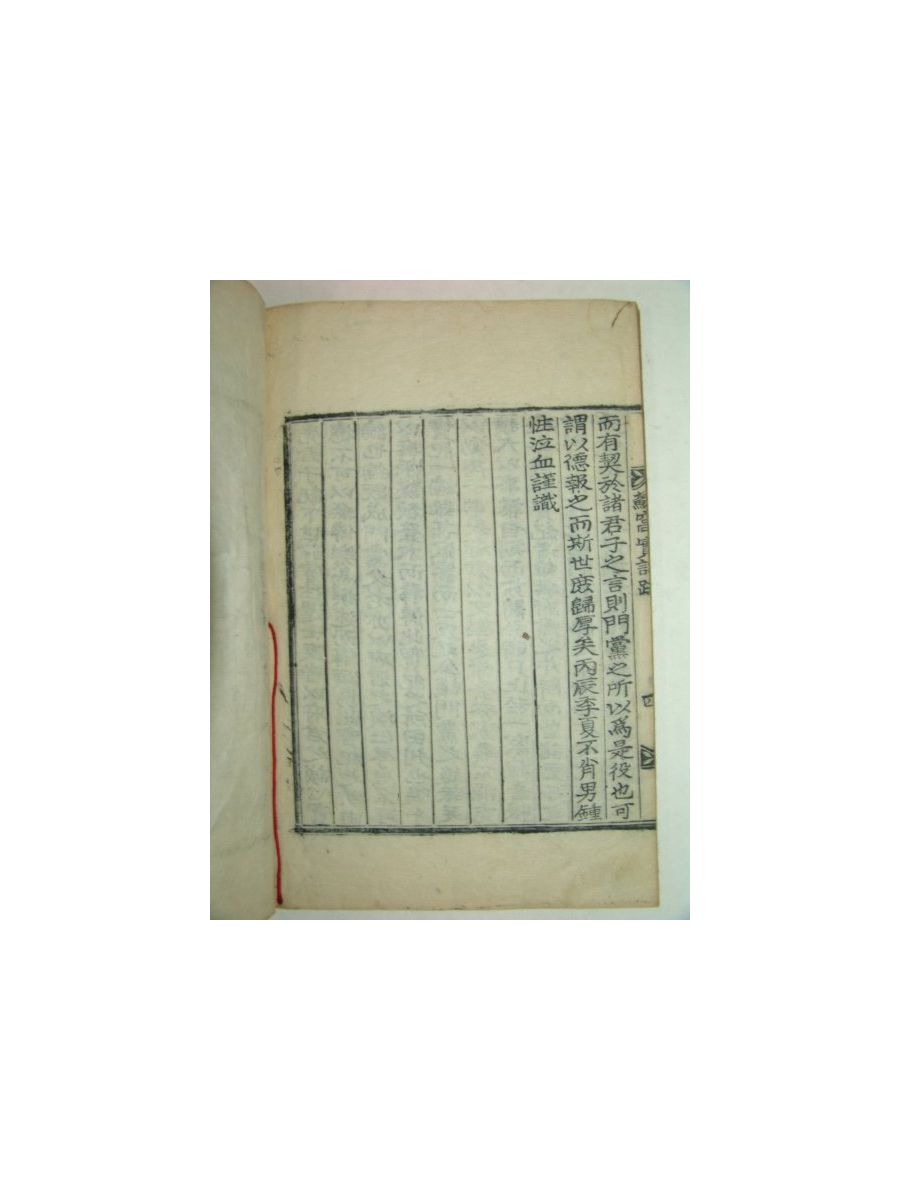 而有契於諸君子之言則門黨之所以爲是役也可
謂以德報之而斯世庶歸厚矣丙辰季夏不肖男鍾
性泣血謹識